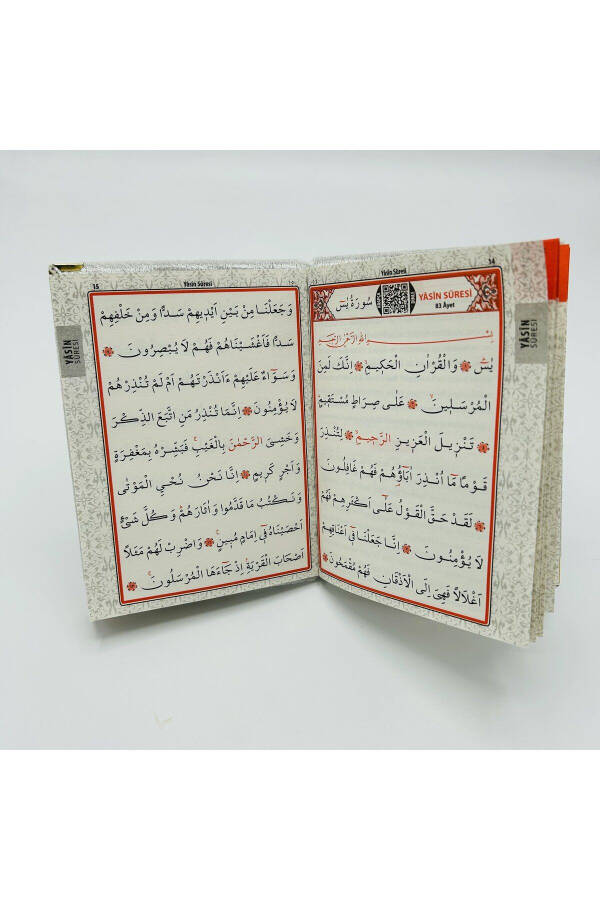 14
Yâsîn Sûresi
سُورَةُ يٰسٓ
YÂSÎN SÛRESİ
83 Âyet
YÂSİN
SÛRESİ
بِسْمِ اللّٰهِ الرَّحْمٰنِ الرَّحٖيمِ
يٰسٓ ۞ وَالْقُرْاٰنِ الْحَكٖيمِۙ ۞ اِنَّكَ لَمِنَ
الْمُرْسَلٖينَۙ ۞ عَلٰى صِرَاطٍ مُسْتَقٖيمٍؕ
۞ تَنْزٖيلَ الْعَزٖيزِ الرَّحٖيمِۙ ۞ لِتُنْذِرَ
قَوْمًا مَٓا اُنْذِرَ اٰبَٓاؤُ۬هُمْ فَهُمْ غَافِلُونَ
۞ لَقَدْ حَقَّ الْقَوْلُ عَلٰٓى اَكْثَرِهِمْ فَهُمْ
لَا يُؤْمِنُونَ ۞ اِنَّا جَعَلْنَا فٖٓي اَعْنَاقِهِمْ
اَغْلَالًا فَهِيَ اِلَى الْاَذْقَانِ فَهُمْ مُقْمَحُونَ ۞
15
Yâsîn Sûresi
YÂSİN
SÛRESİ
وَجَعَلْنَا مِنْ بَيْنِ اَيْدٖيهِمْ سَدًّا وَمِنْ خَلْفِهِمْ
سَدًّا فَاَغْشَيْنَاهُمْ فَهُمْ لَا يُبْصِرُونَ ۞
وَسَوَٓاءٌ عَلَيْهِمْ ءَاَنْذَرْتَهُمْ اَمْ لَمْ تُنْذِرْهُمْ
لَا يُؤْمِنُونَ ۞ اِنَّمَا تُنْذِرُ مَنِ اتَّبَعَ الذِّكْرَ
وَخَشِيَ الرَّحْمٰنَ بِالْغَيْبِۚ فَبَشِّرْهُ بِمَغْفِرَةٍ
وَاَجْرٍ كَرٖيمٍ ۞ اِنَّا نَحْنُ نُحْيِ الْمَوْتٰى
وَنَكْتُبُ مَا قَدَّمُوا وَاٰثَارَهُمْؕ وَكُلَّ شَيْءٍ
اَحْصَيْنَاهُ فٖٓي اِمَامٍ مُبٖينٍ ۞ وَاضْرِبْ لَهُمْ مَثَلًا
اَصْحَابَ الْقَرْيَةِۘ اِذْ جَٓاءَهَا الْمُرْسَلُونَۚ ۞